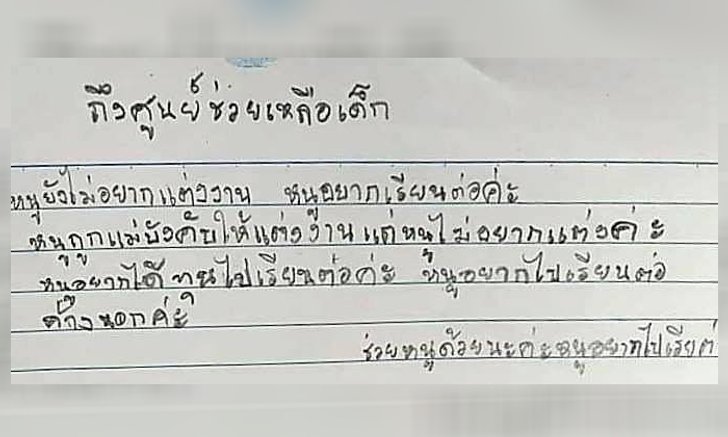 ถึงศูนย์ช่วยเหลือเด็ก
หนูยังไม่อยากแต่งงาน หนูอยากเรียนต่อค่ะ
หนูถูกแม่บังคับให้แต่งงานแต่หนูไม่อยากแต่งค่ะ
หนูอยากได้ทุนไปเรียนต่อค่ะ หนูอยากไปเรียนต่อ
ข้างนอกค่ะ
ช่วยหนูด้วยนะคะหนูอยากไปเรียต่